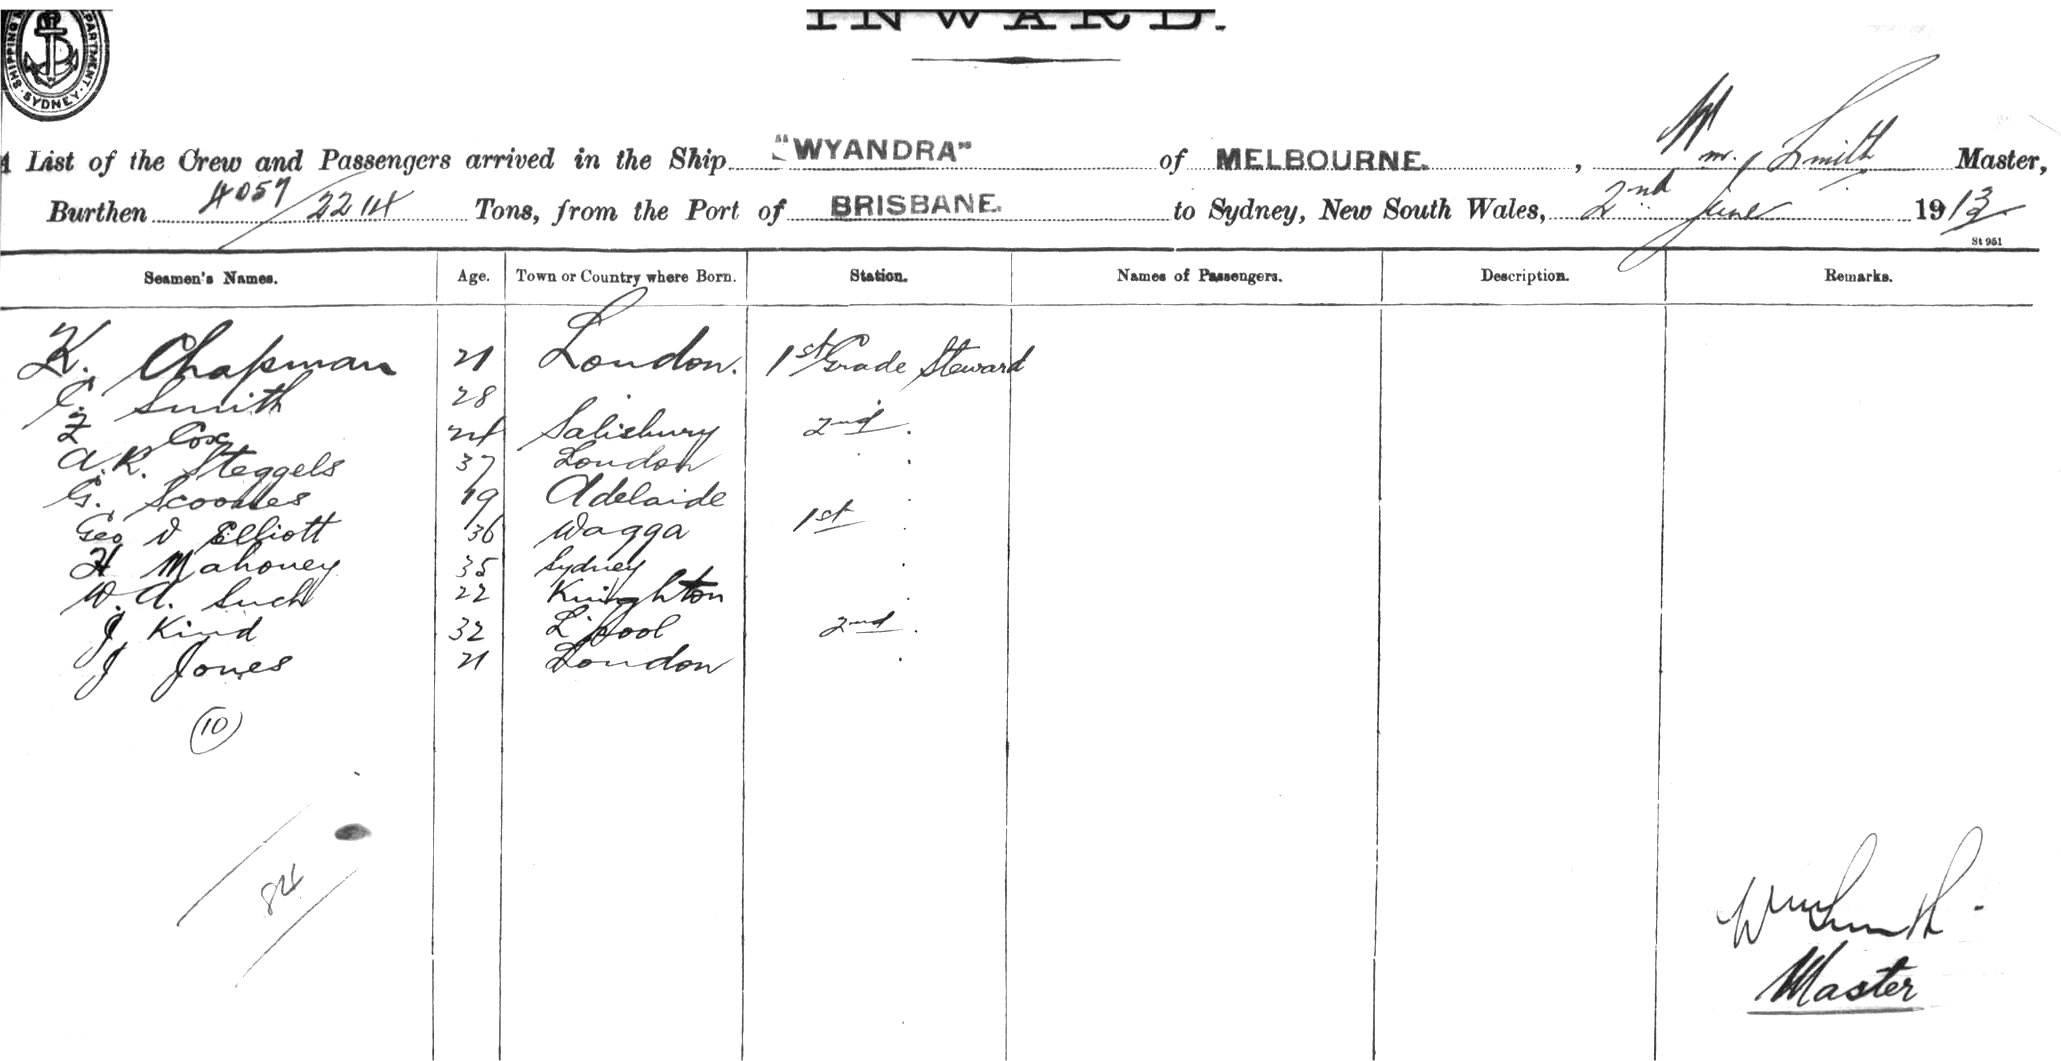 INWARD.
SHIPPING DEPARTMENT. SYDNEY.
A List of the Crew and Passengers arrived in the Ship "WYANDRA" of MELBOURNE, Wm. Smith Master,
Burthen 4057/2214 Tons, from the Port of BRISBANE. to Sydney, New South Wales, 2nd June 1913
St 951
Seamen's Names. Age. Town or Country where Born. Station. Names of Passengers. Description. Remarks.
K. Chapman 21 London. 1st Grade Steward
C. Smith 28
Z Cox 24 Salisbury 2nd .
A.R. Steggels 37 London
G. Scoones 19 Adelaide
Geo V Elliott 36 Wagga 1st
H Mahoney 35 Sydney
W. A. Such 22 Knighton
J Kind 32 L'pool 2nd .
J Jones 21 London
10
84
Wm Smith
Master